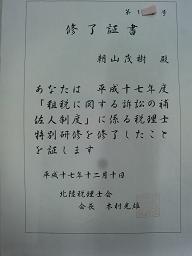 第1
修了証書
朝山茂樹 殿
あなたは 平成十七年度
「租税に関する訴訟の補
佐人制度」に係る税理士
特別研修を修了したこと
を証します
平成十七年十二月十日
北陸税理士会
会長 木村光雄